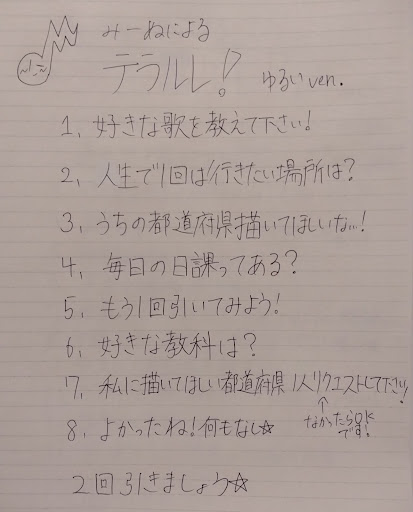 みーねによる
テラルレ! ゆるいver.
1、好きな歌を教えて下さい!
2、人生で1回は行きたい場所は?
3、うちの都道府県描いてほしいな…!
4、毎日の日課ってある?
5、もう1回引いてみよう!
6、好きな教科は?
7、私に描いてほしい都道府県1人リクエストして下さい!
↑
なかったらOKです!
8、よかったね!何もなし☆
2回引きましょう☆